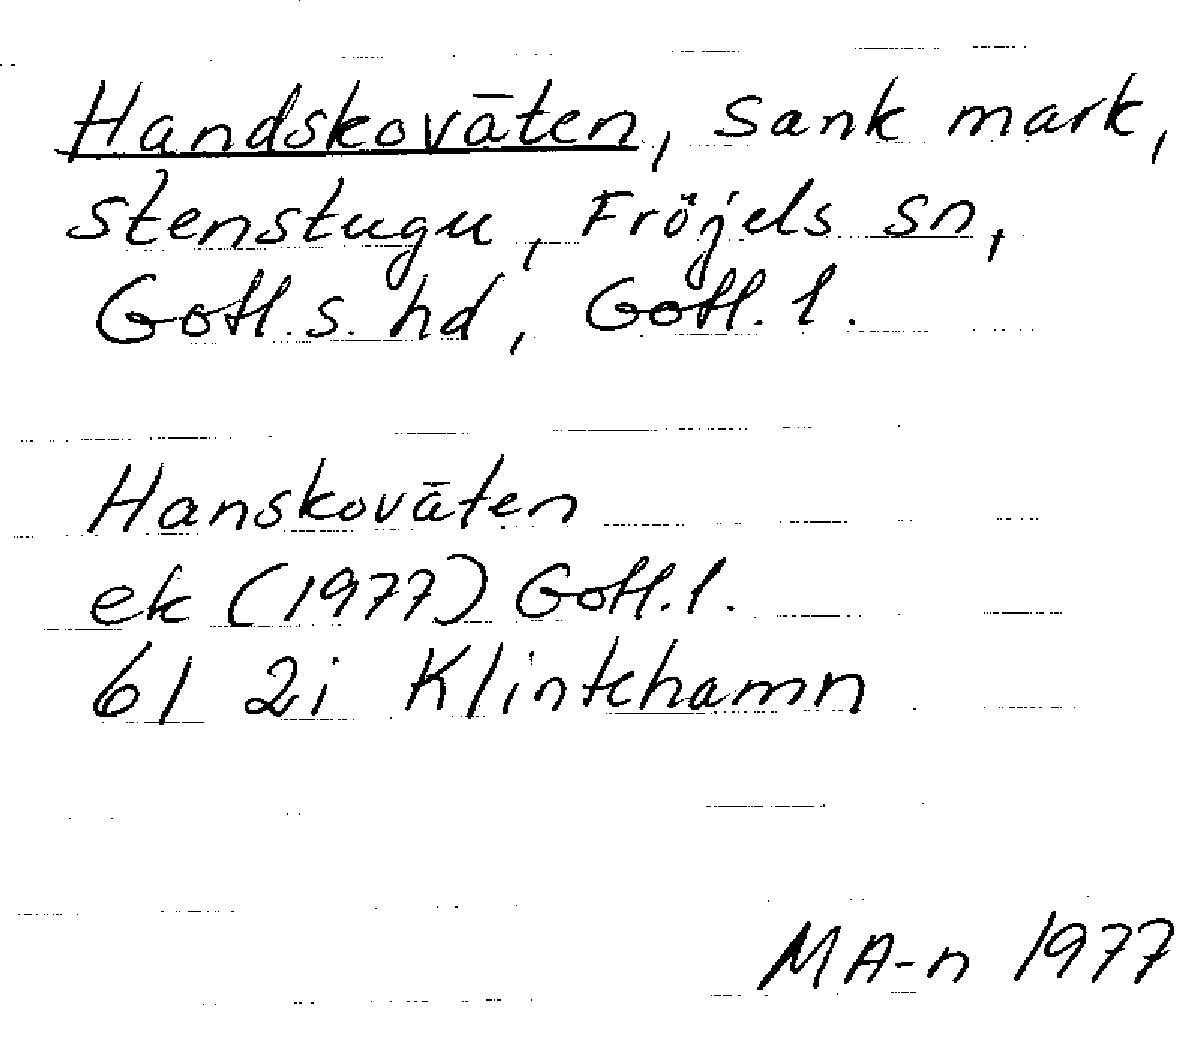 Handskoväten, sank mark,
Stenstugu, Fröjels sn,
Gotl. s. hd, Gotl. l.
Hanskoväten
ek (1977) Gotl. l.
6I 2i Klintehamn
MA-n 1977